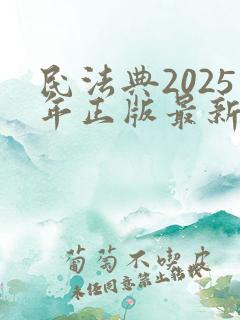 民法典2025
年正版最新
葡萄不喫皮
未经同意禁止转载